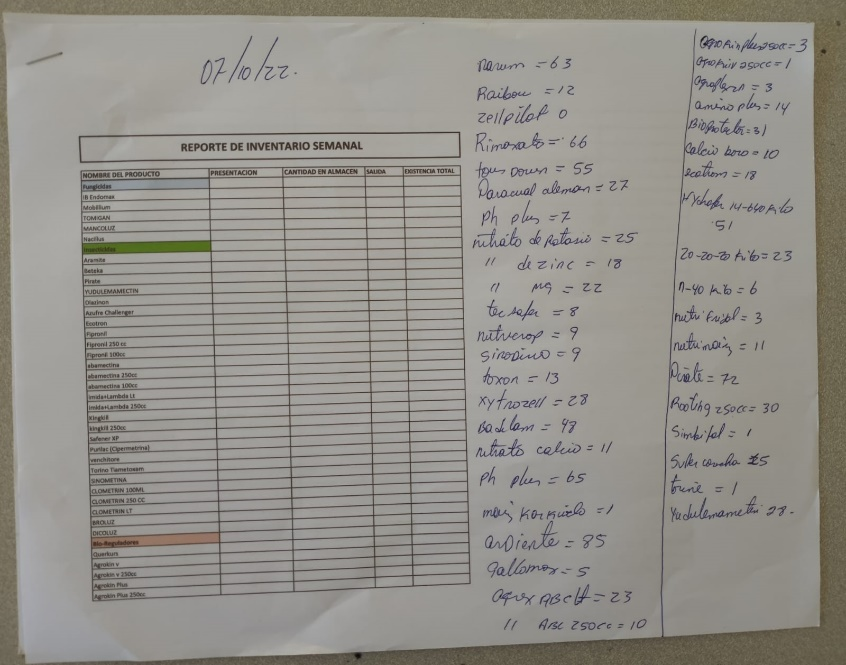 07/10/22.
REPORTE DE INVENTARIO SEMANAL
NOMBRE DEL PRODUCTO PRESENTACION CANTIDAD EN ALMACEN SALIDA EXISTENCIA TOTAL
Fungicidas
IB Endomax
Mobillium
TOMIGAN
MANCOLUZ
Nacillus
Insecticidas
Aramite
Beteka
Pirate
YUDULEMAMECTIN
Diazinon
Azufre Challenger
Ecotron
Fipronil
Fipronil 250 cc
Fipronil 100cc
abamectina
abamectina 250cc
abamectina 100cc
Imida+Lambda Lt
Imida+Lambda 250cc
Kingkill
kingkill 250cc
Safener XP
Purilac (Cipermetrina)
venckitore
Torino Tiametoxam
SINOMETINA
CLOMETRIN 100ML
CLOMETRIN 250 CC
CLOMETRIN LT
BROLUZ
DICOLUZ
Bio-Reguladores
Querkurs
Agrokin v
Agrokin v 250cc
Agrokin Plus
Agrokin Plus 250cc
= 63
Raibow = 12
zellpilot 0
Rimoxato = 66
tous down = 55
Paracual aleman = 27
ph plus = 7
nitrato de Potasio = 25
" de zinc = 18
" mg = 22
tecsafer = 8
nutricrop = 9
= 9
toxon = 13
xytrozell = 28
Backlam = 48
nitrato calcio = 11
ph plus = 65
maiz = 1
ardiente = 85
gallomax = 5
ABC lt = 23
" ABC 250cc = 10
agrokin plus 250cc = 3
agrokin 250cc = 1
= 3
amino plus = 14
= 31
calcio boro = 10
ecotrom = 18
14-6-40 Kilo
51
20-20-20 Kilo = 23
n-40 Kilo = 6
nutri frijol = 3
nutrimaiz = 11
Pirate = 72
Rooting 250cc = 30
= 1
Super 25
= 1
Yudulemametin 28-